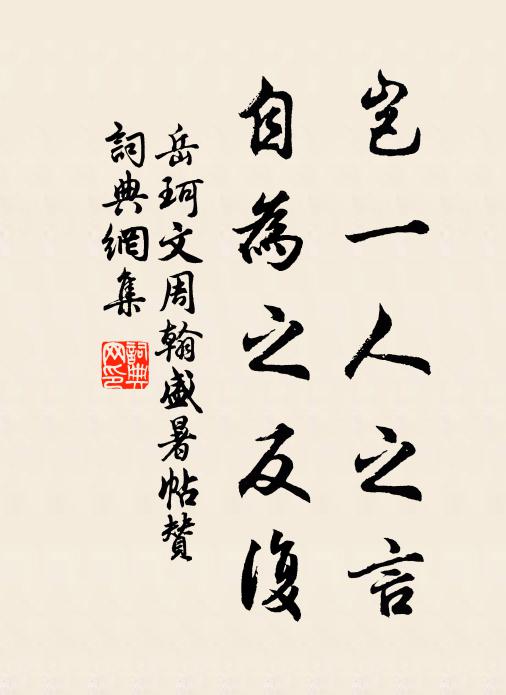 豈一人之言
自為之反復
岳珂文周翰盛暑帖贊
詞典網集
詞典
网印